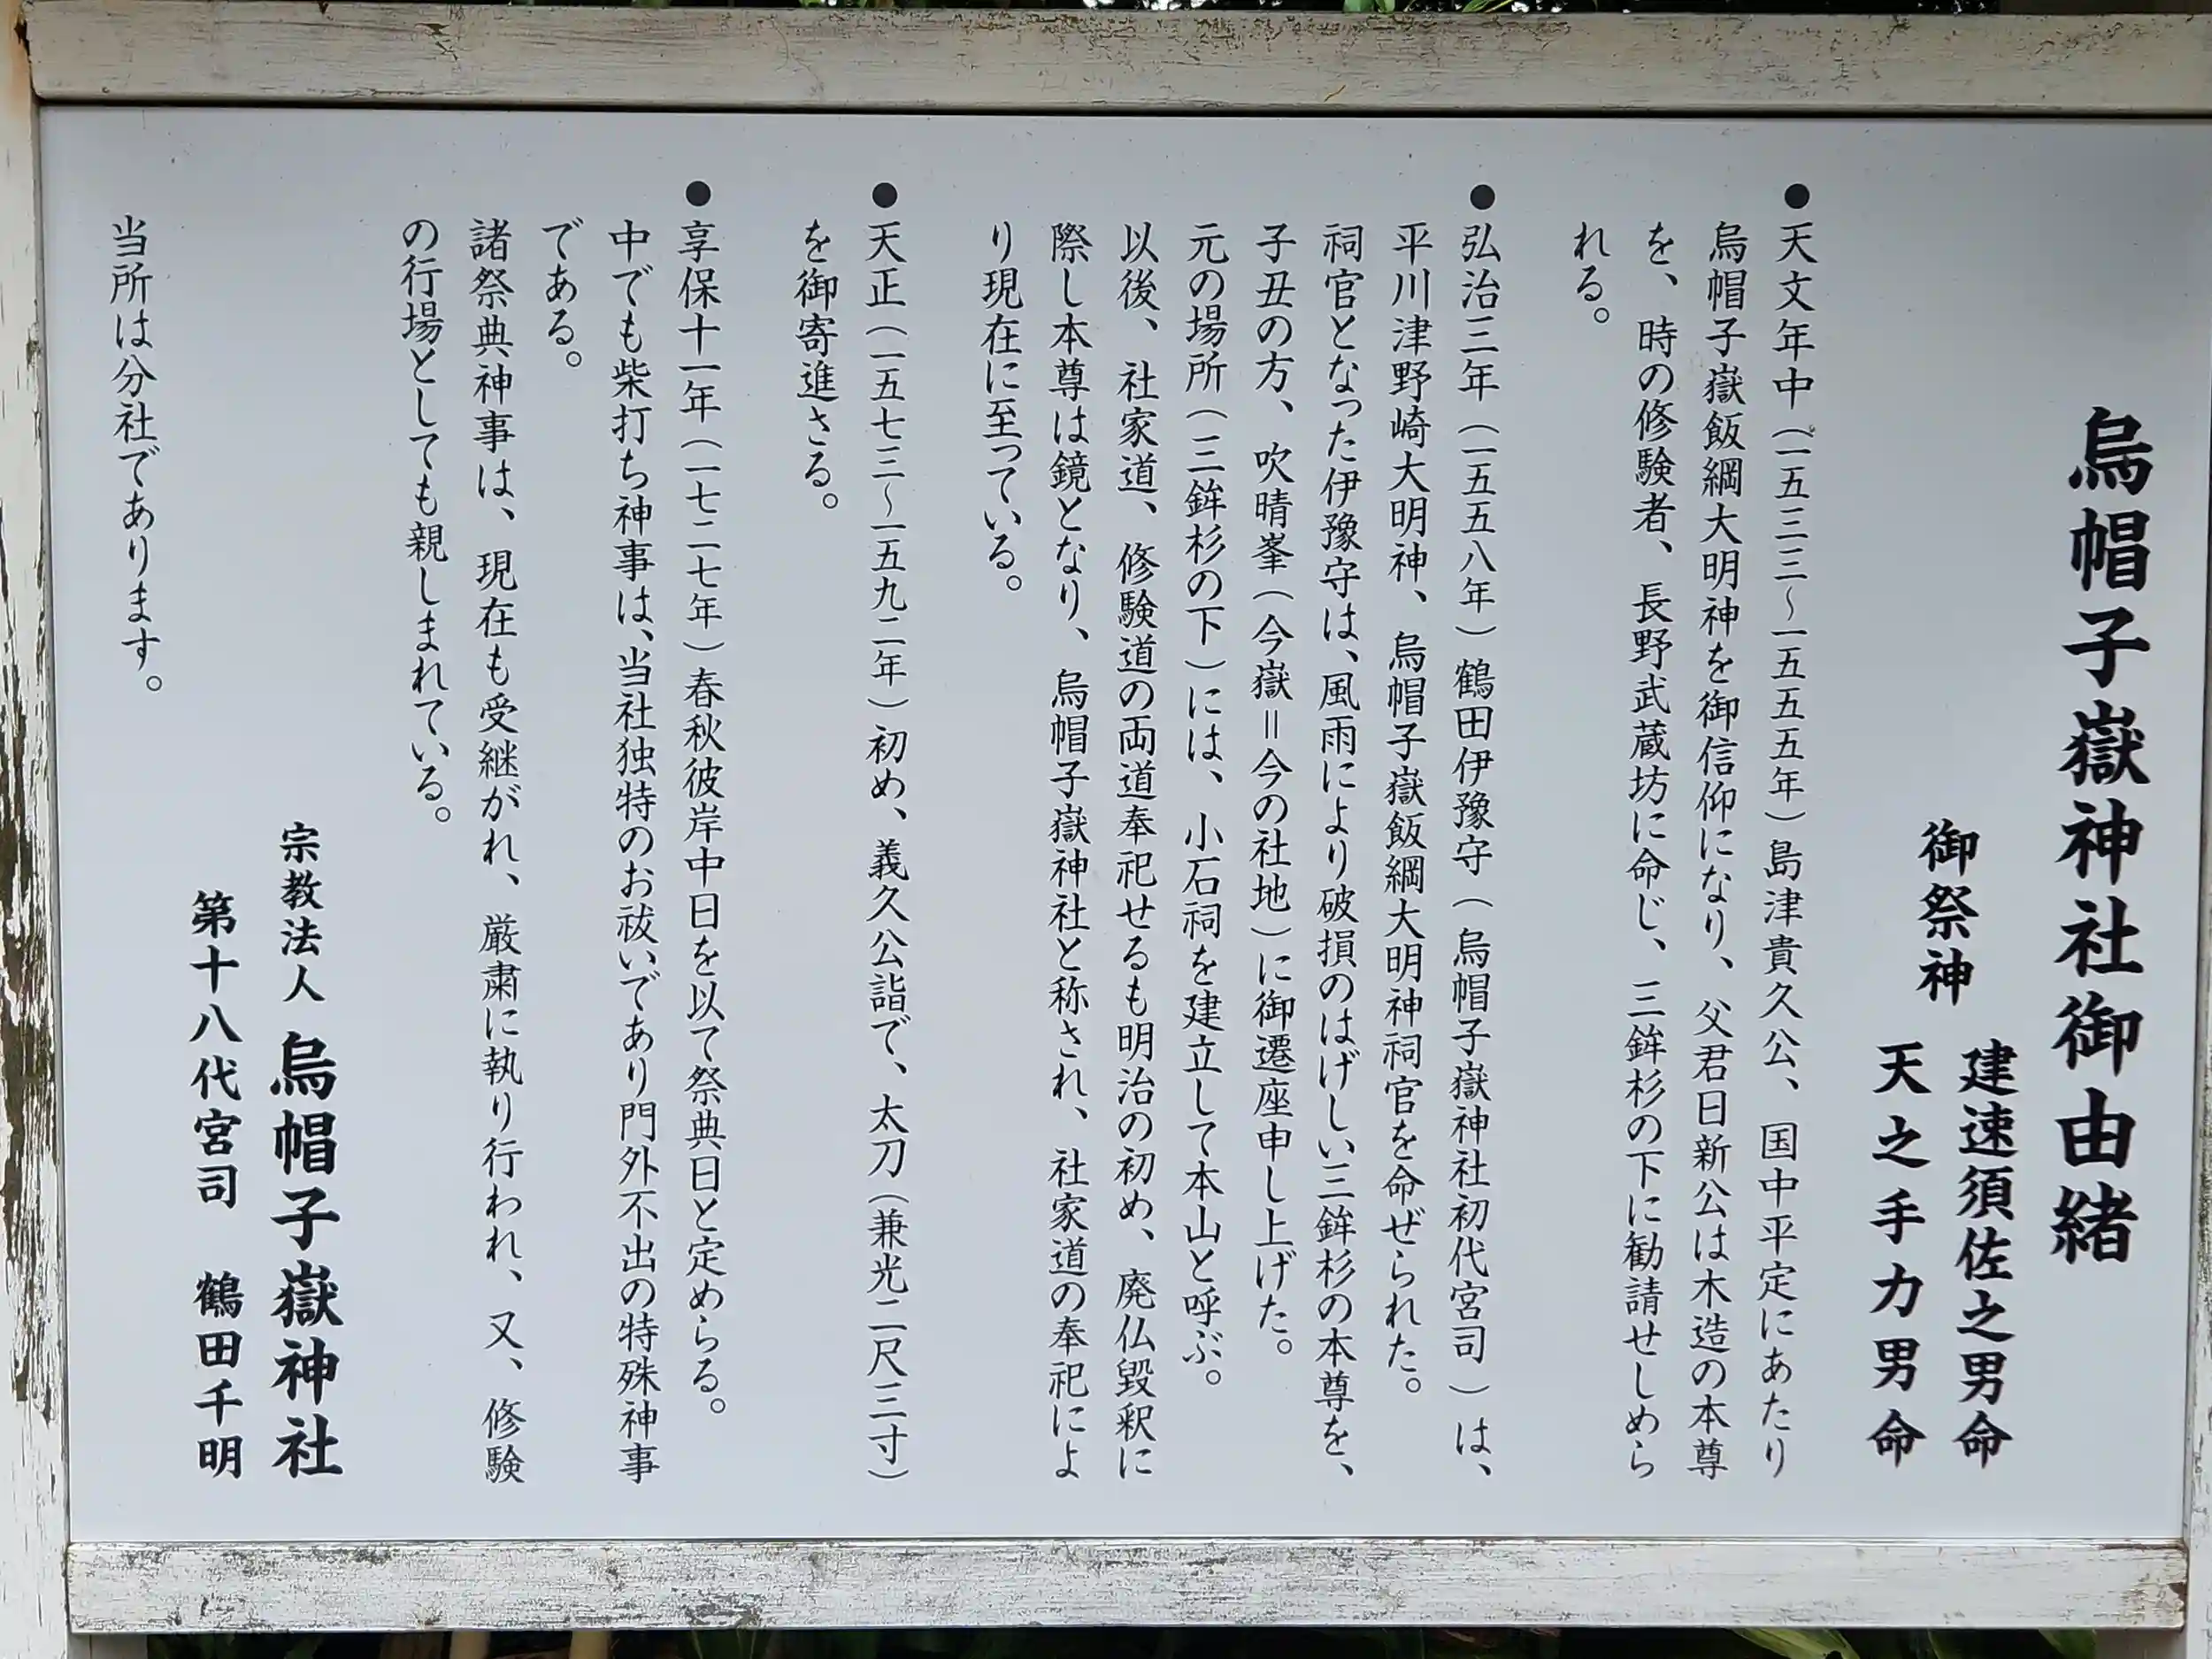 烏帽子嶽神社御由緒
御祭神
建速須佐之男命
天之手力男命
●天文年中(一五三三～一五五五年)島津貴久公、国中平定にあたり
烏帽子嶽飯綱大明神を御信仰になり、父君日新公は木造の本尊
を、時の修験者、長野武蔵坊に命じ、三鉾杉の下に勧請せしめら
れる。
●弘治三年(一五五八年)鶴田伊豫守(烏帽子嶽神社初代宮司)は、
平川津野崎大明神、烏帽子嶽飯綱大明神祠官を命ぜられた。
祠官となった伊豫守は、風雨により破損のはげしい三鉾杉の本尊を、
子丑の方、吹晴峯(今嶽=今の社地)に御遷座申し上げた。
元の場所(三鉾杉の下)には、小石祠を建立して本山と呼ぶ。
以後、社家道、修験道の両道奉祀せるも明治の初め、廃仏毀釈に
際し本尊は鏡となり、烏帽子嶽神社と称され、社家道の奉祀によ
り現在に至っている。
●天正(一五七三～一五九二年)初め、義久公詣で、太刀(兼光二尺三寸)
を御寄進さる。
●享保十一年(一七二七年)春秋彼岸中日を以て祭典日と定めらる。
中でも柴打ち神事は、当社独特のお祓いであり門外不出の特殊神事
である。
諸祭典神事は、現在も受継がれ、厳粛に執り行われ、又、修験
の行場としても親しまれている。
宗教法人 烏帽子嶽神社
第十八代宮司 鶴田千明
当所は分社であります。